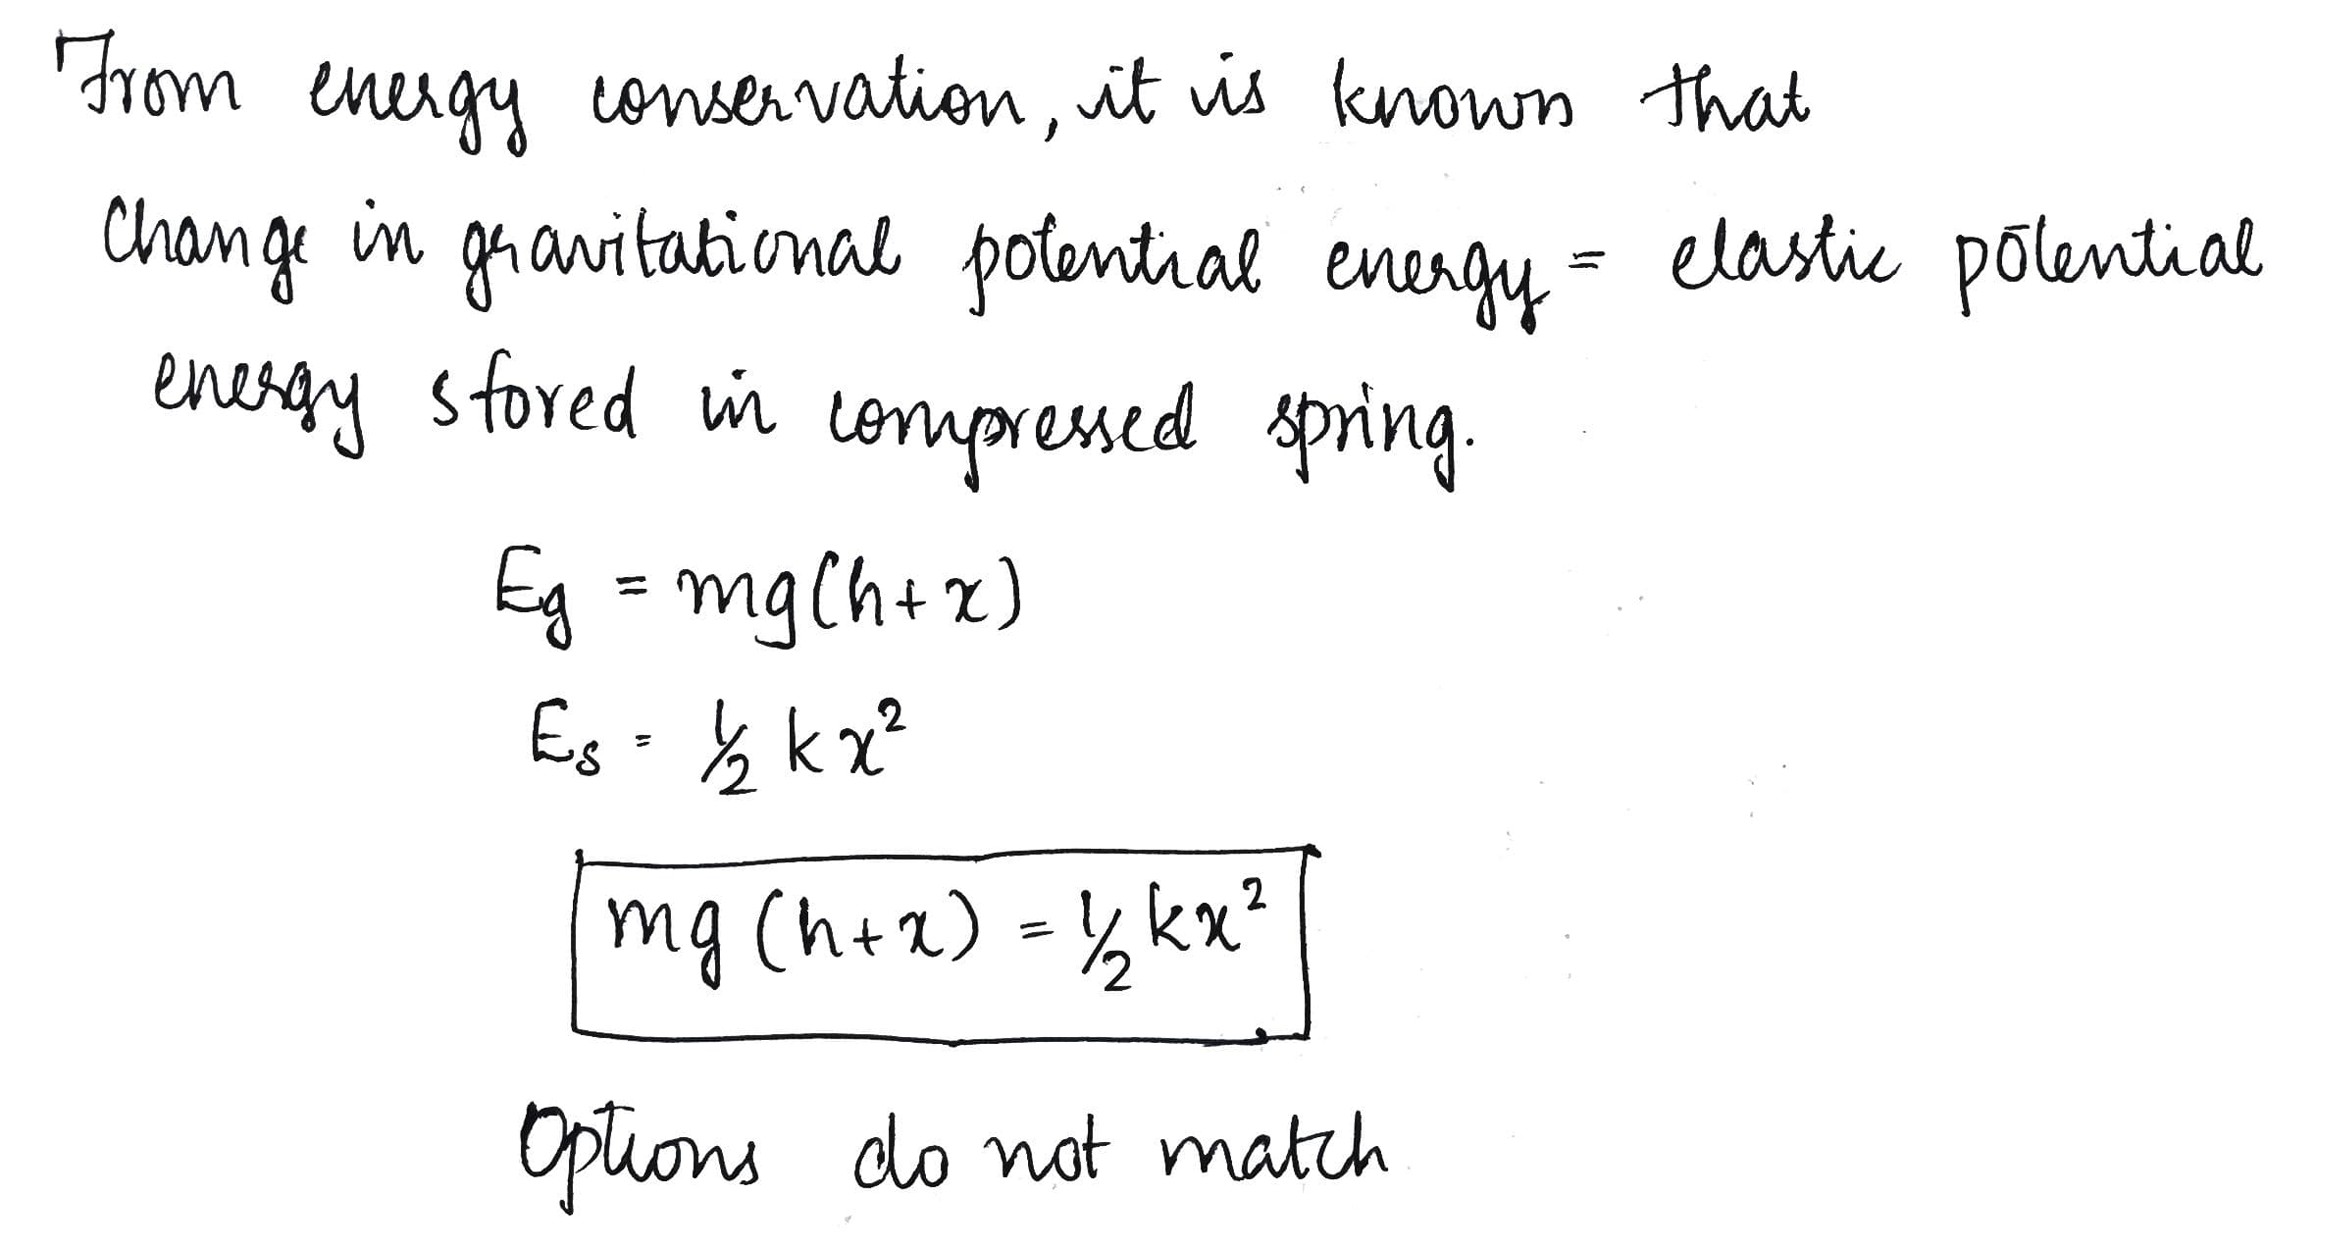 From energy conservation, it is known that
Change in gravitational potential energy = elastic potential
energy stored in compressed spring.
Eg = mg(h+x)
Es = 1/2 kx²
mg (h+x) = 1/2 kx²
Options do not match